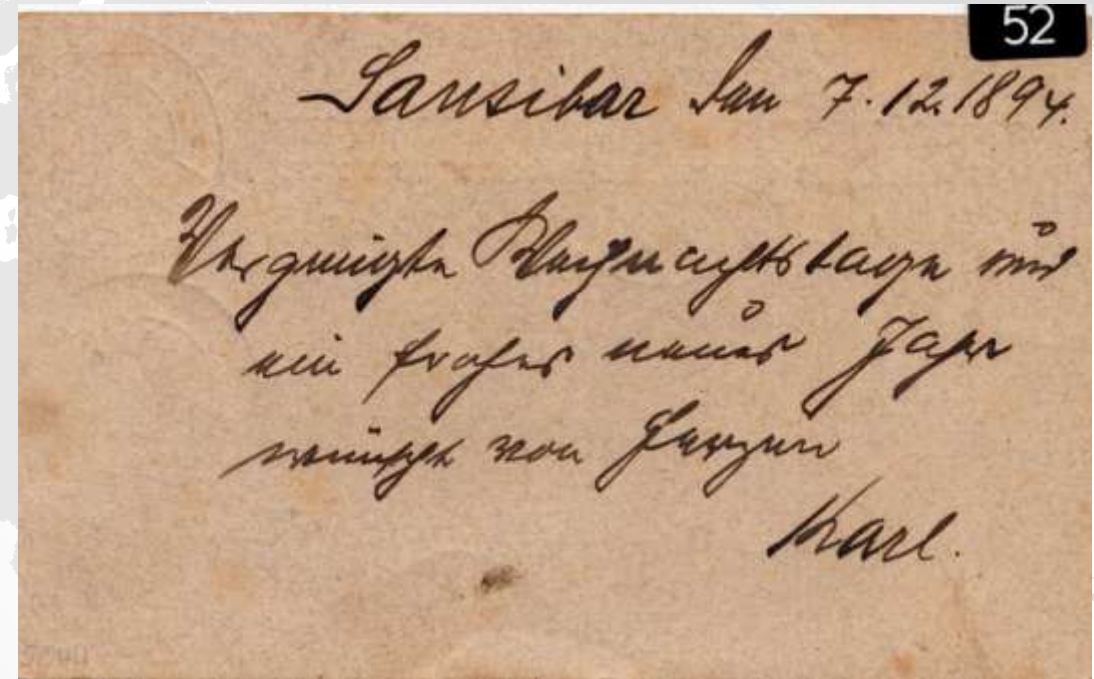 52
Sansibar den 7.12.1894.
Vergnügte Weihnachtstage und
ein frohes neues Jahr
wünscht von Herzen
Karl.